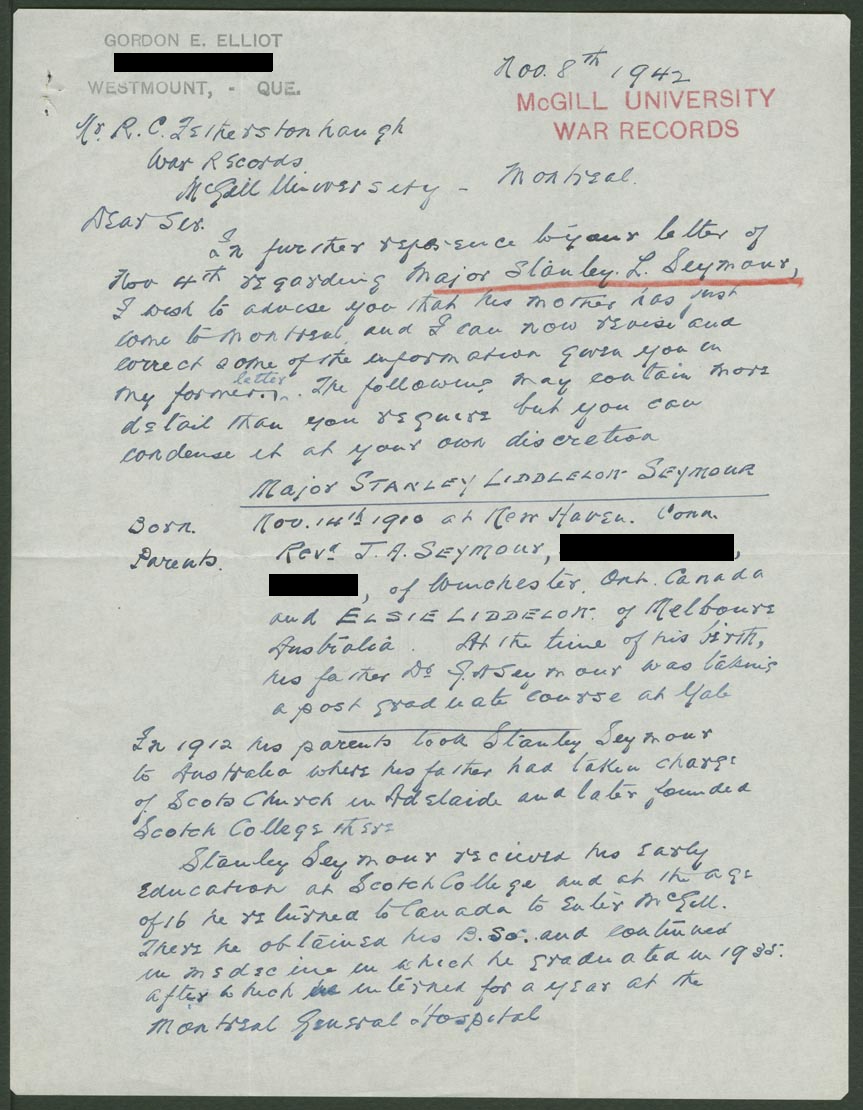 GORDON E. ELLIOT
WESTMOUNT, - QUE.
Nov. 8th 1942
McGILL UNIVERSITY
WAR RECORDS
Mr. R. C. Fetherstonhaugh
War Records
McGill University - Montreal.
Dear Sir.
In further reference to your letter of
Nov 4th regarding Major Stanley. L. Seymour,
I wish to advise you that his mother has just
come to Montreal, and I can now revise and
correct some of the information given you in
my former letter. The following may contain more
detail than you require but you can
condense it at your own discretion
Major STANLEY LIDDLELOK SEYMOUR
Born. Nov. 14th 1910 at New Haven. Conn.
Parents. Revd J. A. SEYMOUR,
, of Winchester, Ont. Canada
and ELSIE LIDDELOK. of Melbourne
Australia. At the time of his birth,
his father Dr Seymour was taking
a post graduate course at Yale
In 1912 his parents took Stanley Seymour
to Australia where his father had taken charge
of Scots Church in Adelaide and later founded
Scotch College there
Stanley Seymour recieved his early
education at Scotch College and at the age
of 16 he returned to Canada to enter McGill.
There he obtained his B.Sc. and continued
in medecine in which he graduated in 1935.
after which he interned for a year at the
Montreal General Hospital